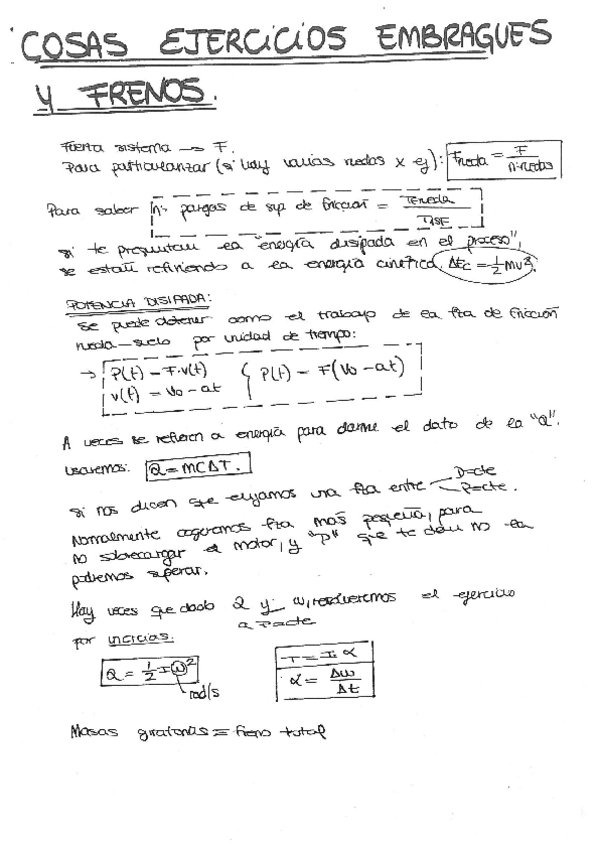 COSAS EJERCICIOS EMBRAGUES
Y FRENOS.
Fuerza sistema → F.
Para particularizar (si hay varias ruedas x ej): Frueda = F / nº ruedas
Para saber nº parejas de sup de fricción = T rueda /
si te preguntan la "energía disipada en el proceso",
se están refiriendo a la energía cinética. ΔEc = 1/2 mv².
POTENCIA DISIPADA:
Se puede obtener como el trabajo de la fza de fricción
rueda-suelo por unidad de tiempo:
→ P(t) = F·v(t) { P(t) = F(Vo - at)
v(t) = Vo - at
A veces se refieren a energía para darme el dato de la "Q".
usaremos: Q = MCΔT.
si nos dicen que elijamos una fza entre D=cte
P=cte.
Normalmente cogeremos fza más pequeña, para
no sobrecargar el motor, y "p" que te den no la
podremos superar.
Hay veces que dado Q y w, resolveremos el ejercicio
a P=cte
por inercias:
Q = 1/2 I w²
rad/s
T = I·α
α = Δw / Δt
Masas giratorias = freno total